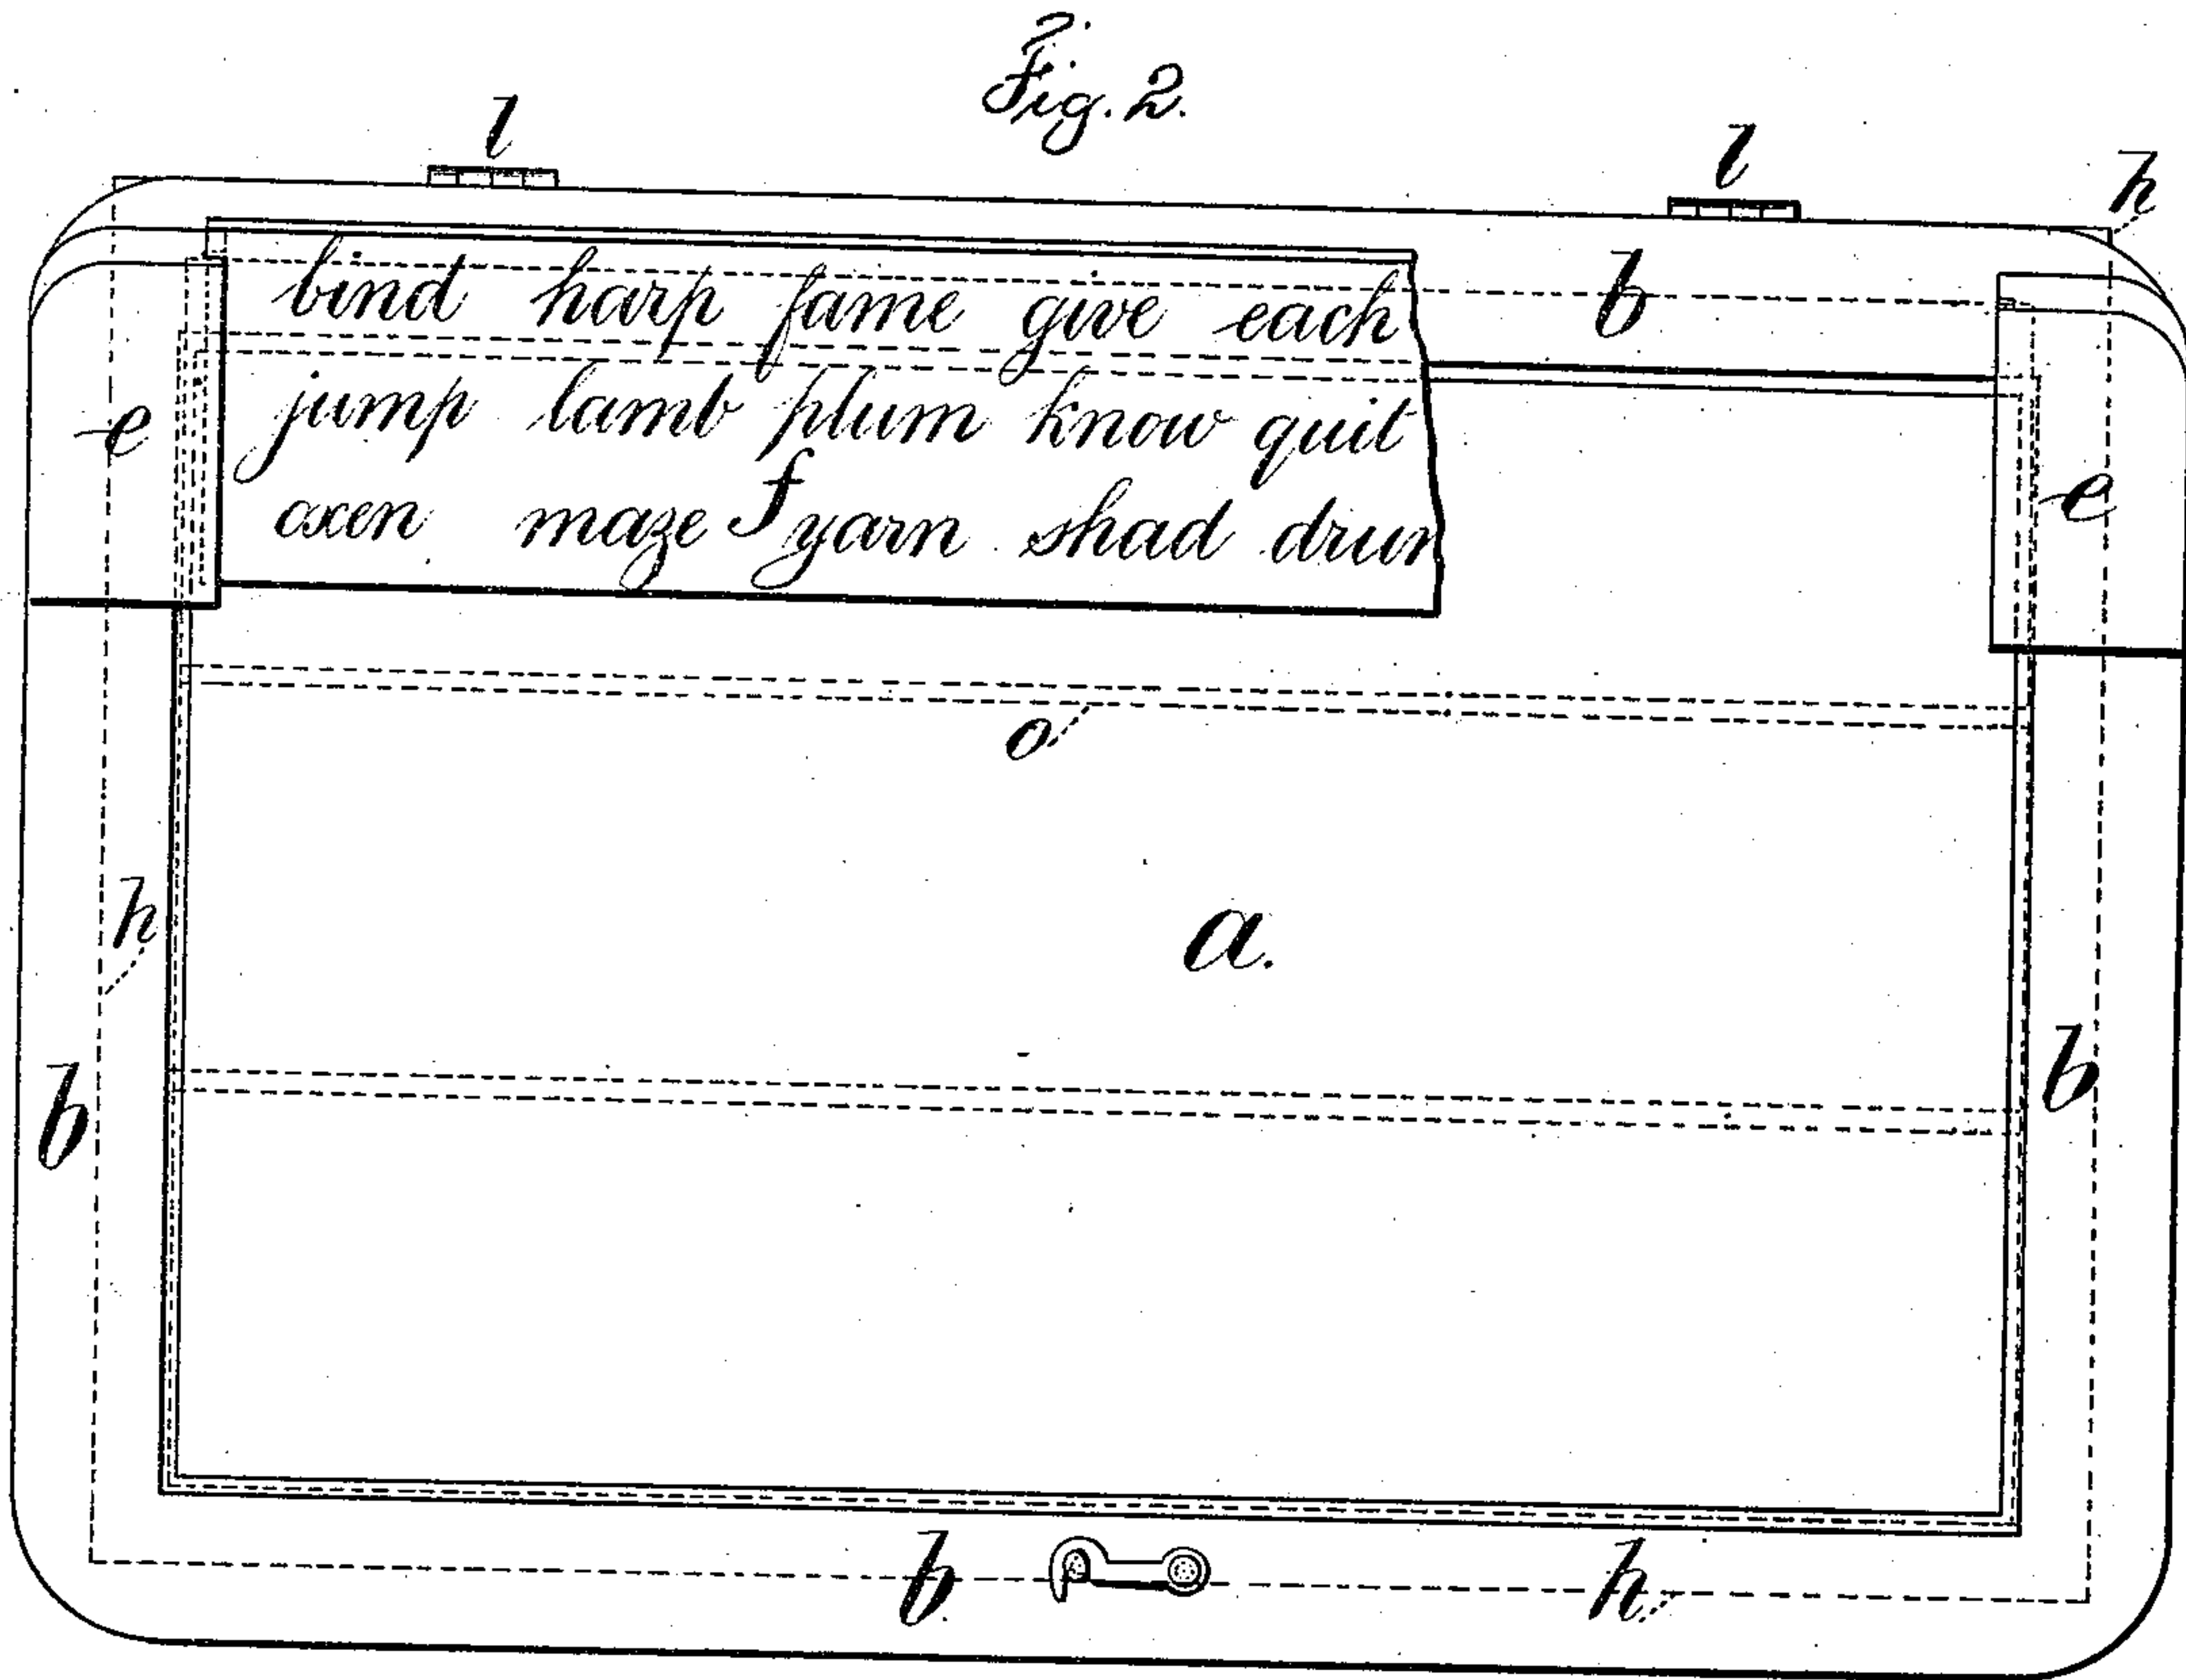 Fig. 2.
l
l
h
bind harp fame give each
b
jump lamb plum know quit
e
e
oxen maze f yarn shad drum
o
h
a.
b
b
b
h